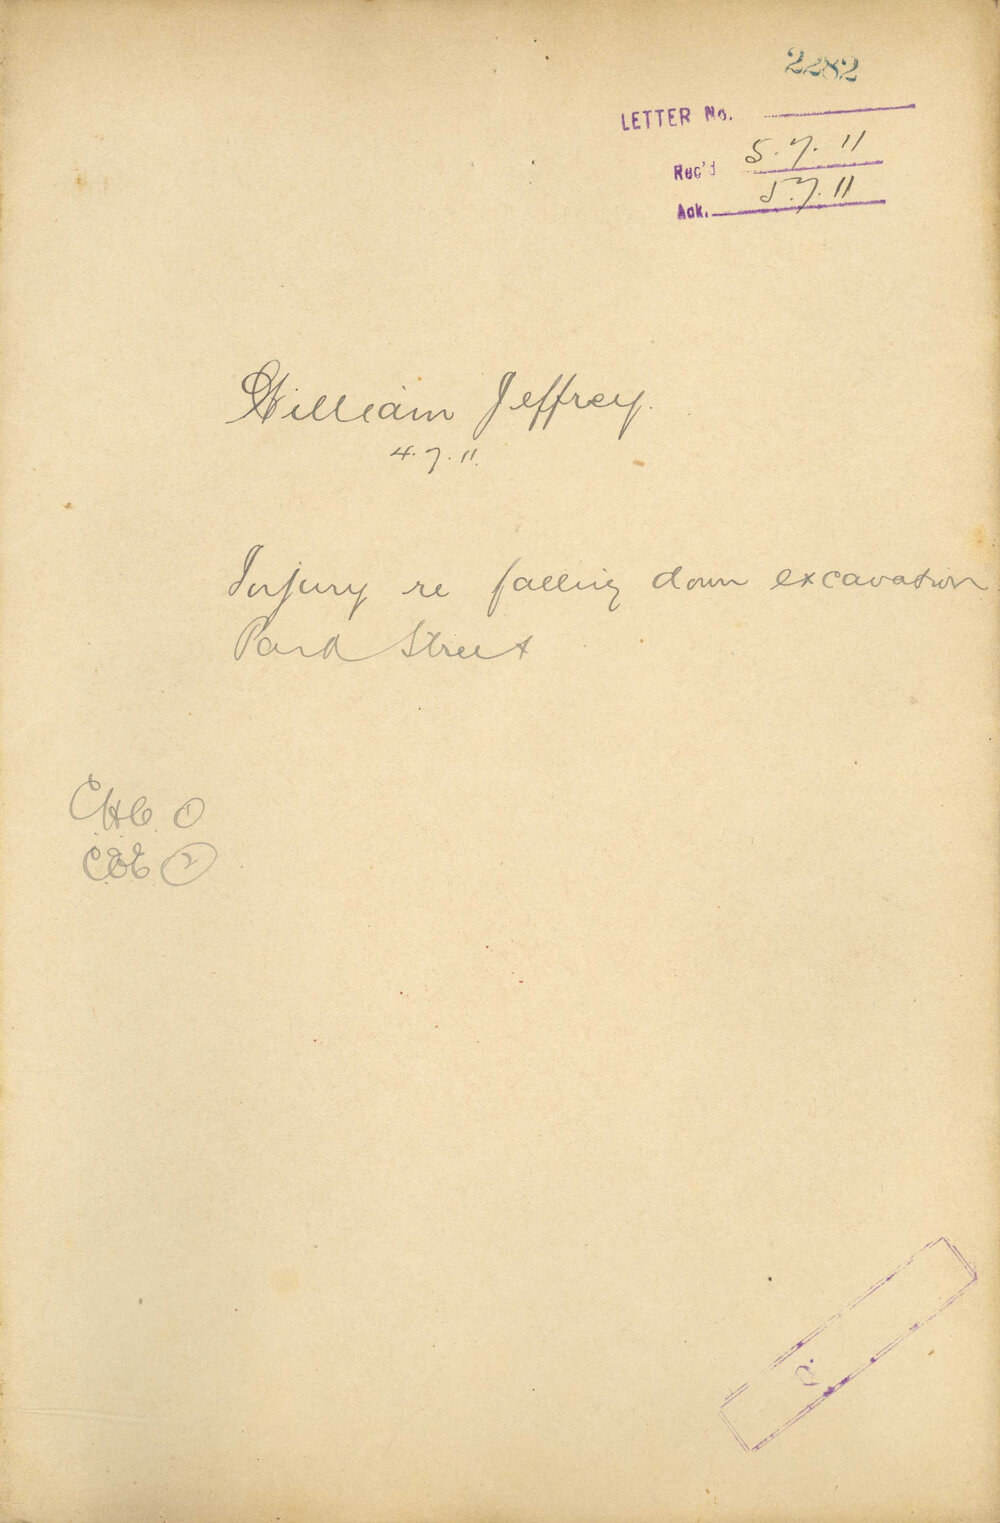 2282
LETTER No.
Rec'd 5.7.11
Ack. 5.7.11
William Jeffrey.
4.7.11.
Injury re falling down excavation
Park Street